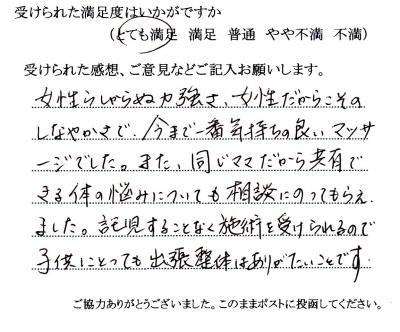 受けられた満足度はいかがですか
(とても満足 満足 普通 やや不満 不満)
受けられた感想、ご意見などご記入お願いします。
女性らしからぬ力強さ、女性だからこその
しなやかさで、今まで一番気持ちの良いマッサ
ージでした。また、同じママだから共有で
きる体の悩みについても相談にのってもらえ
ました。託児することなく施術を受けられるので
子供にとっても出張整体はありがたいことです
ご協力ありがとうございました。このままポストに投函してください。